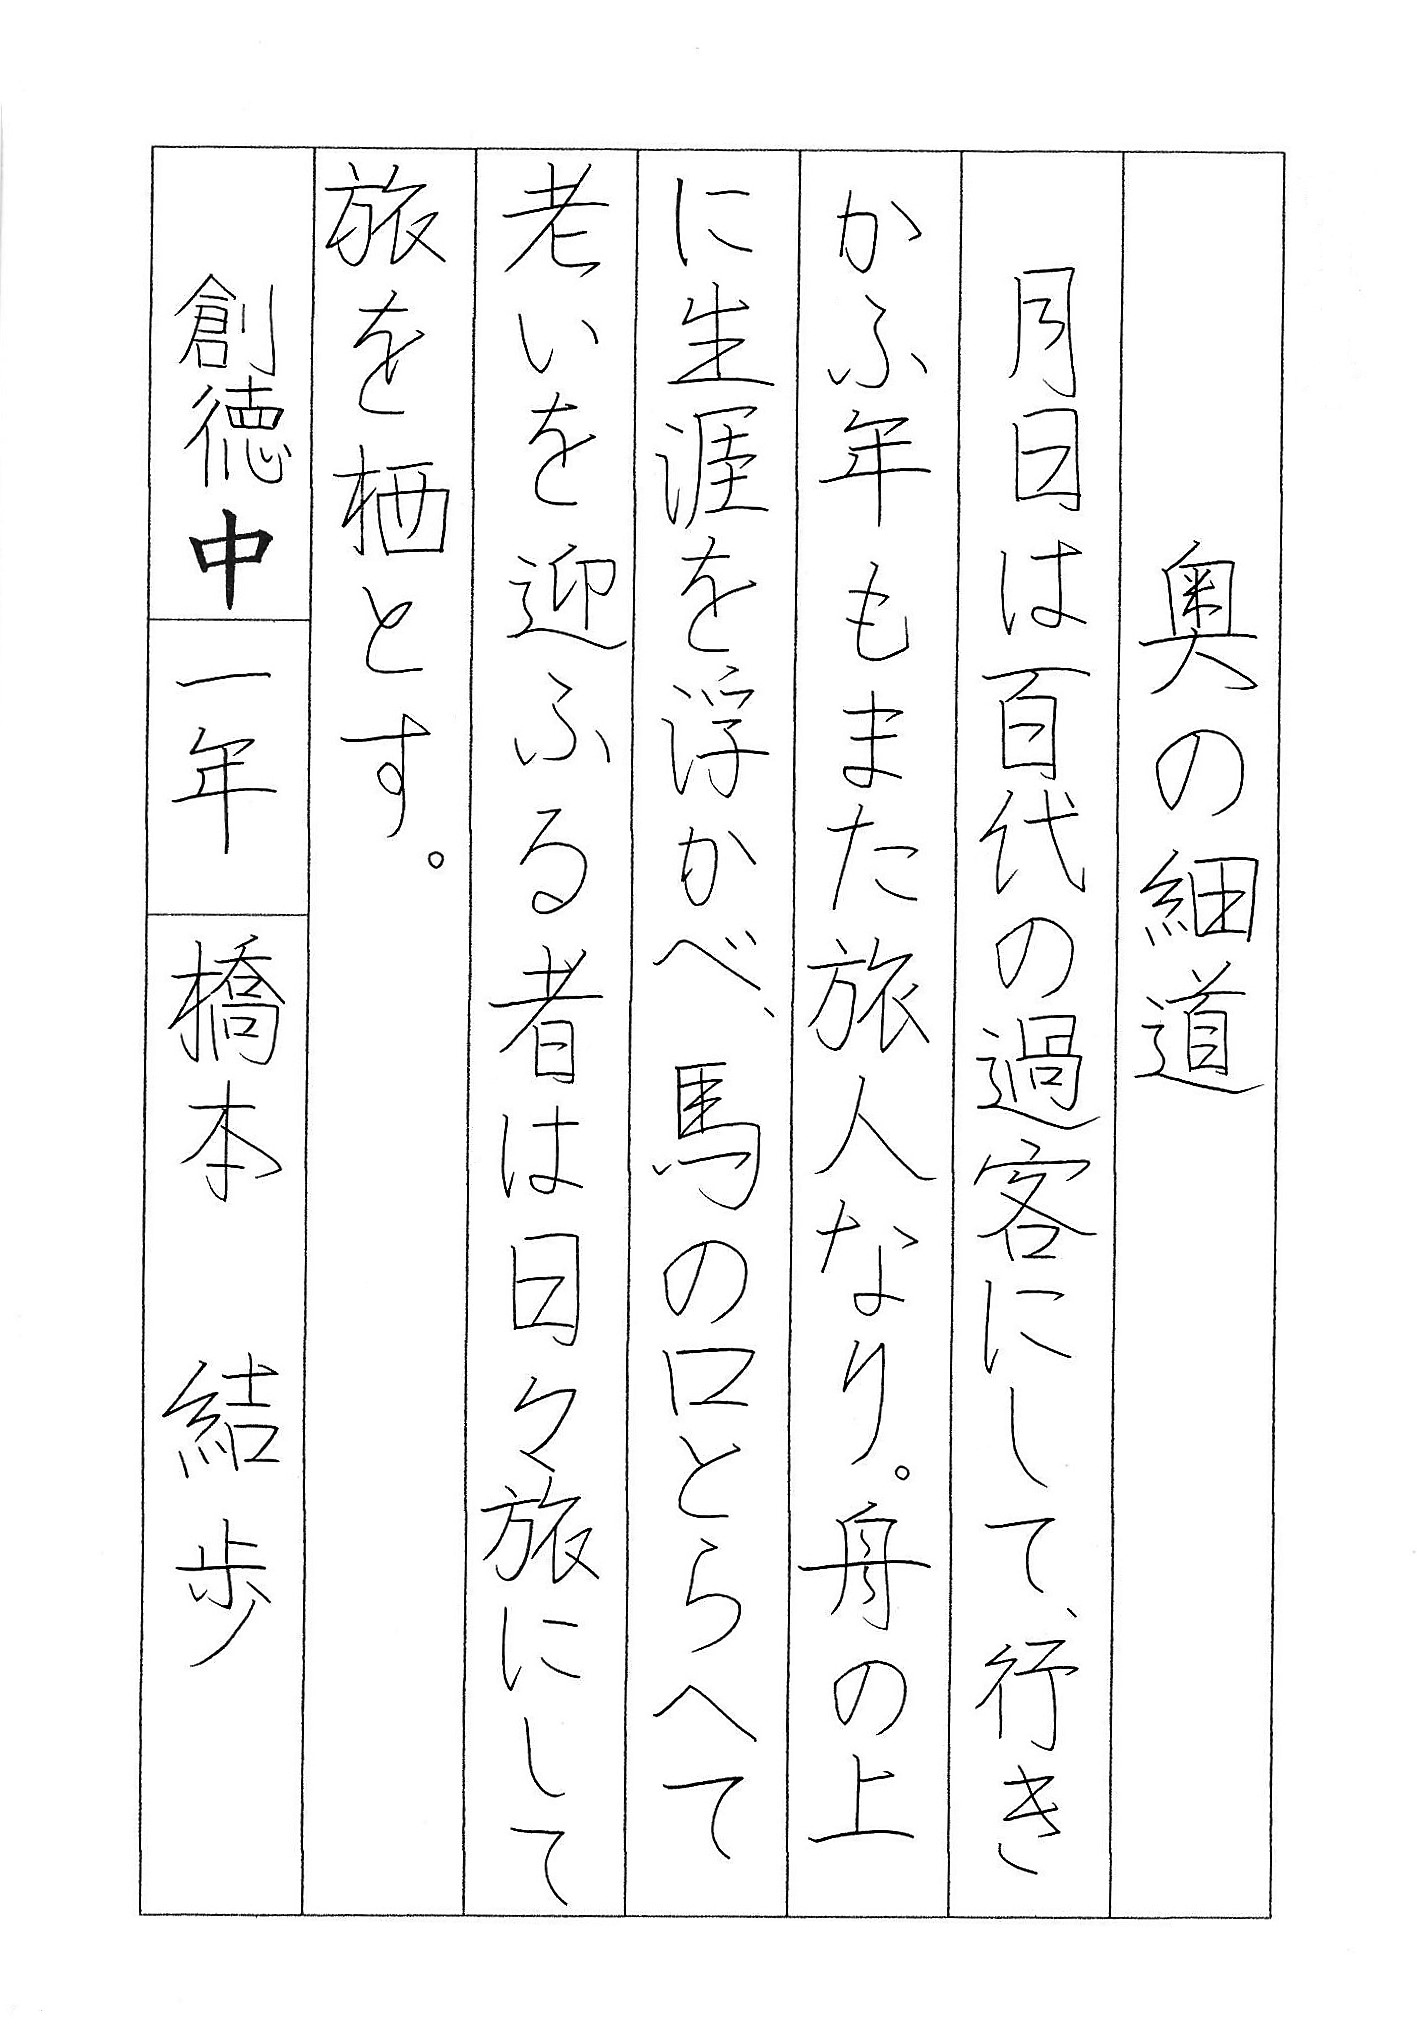 奥の細道
月日は百代の過客にして、行き
かふ年もまた旅人なり。舟の上
に生涯を浮かべ、馬の口とらへて
老いを迎ふる者は日々旅にして
旅を栖とす。
創徳中 一年 橋本 結歩